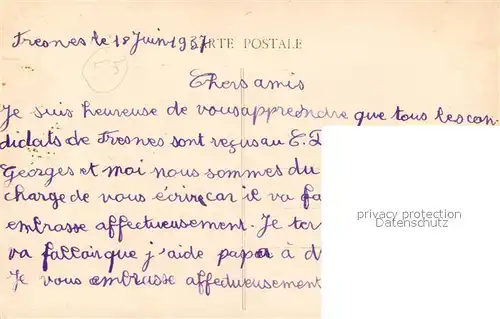 Fresnes le 18 Juin 1937
CARTE POSTALE
55
Chers amis
Je suis heureuse de vous apprendre que tous les can
didats de Fresnes sont reçus au C.
Georges et moi nous sommes du
charge de vous écrire car il va
embrasse affectueusement. Je
va falloir que j'aide papa à
Je vous embrasse affectueusement
privacy protection
Datenschutz